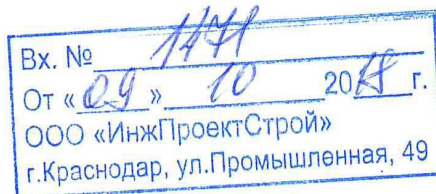 Вх. № 1471
От « 09 » 10 2018 г.
ООО «ИнжПроектСтрой»
г.Краснодар, ул.Промышленная, 49